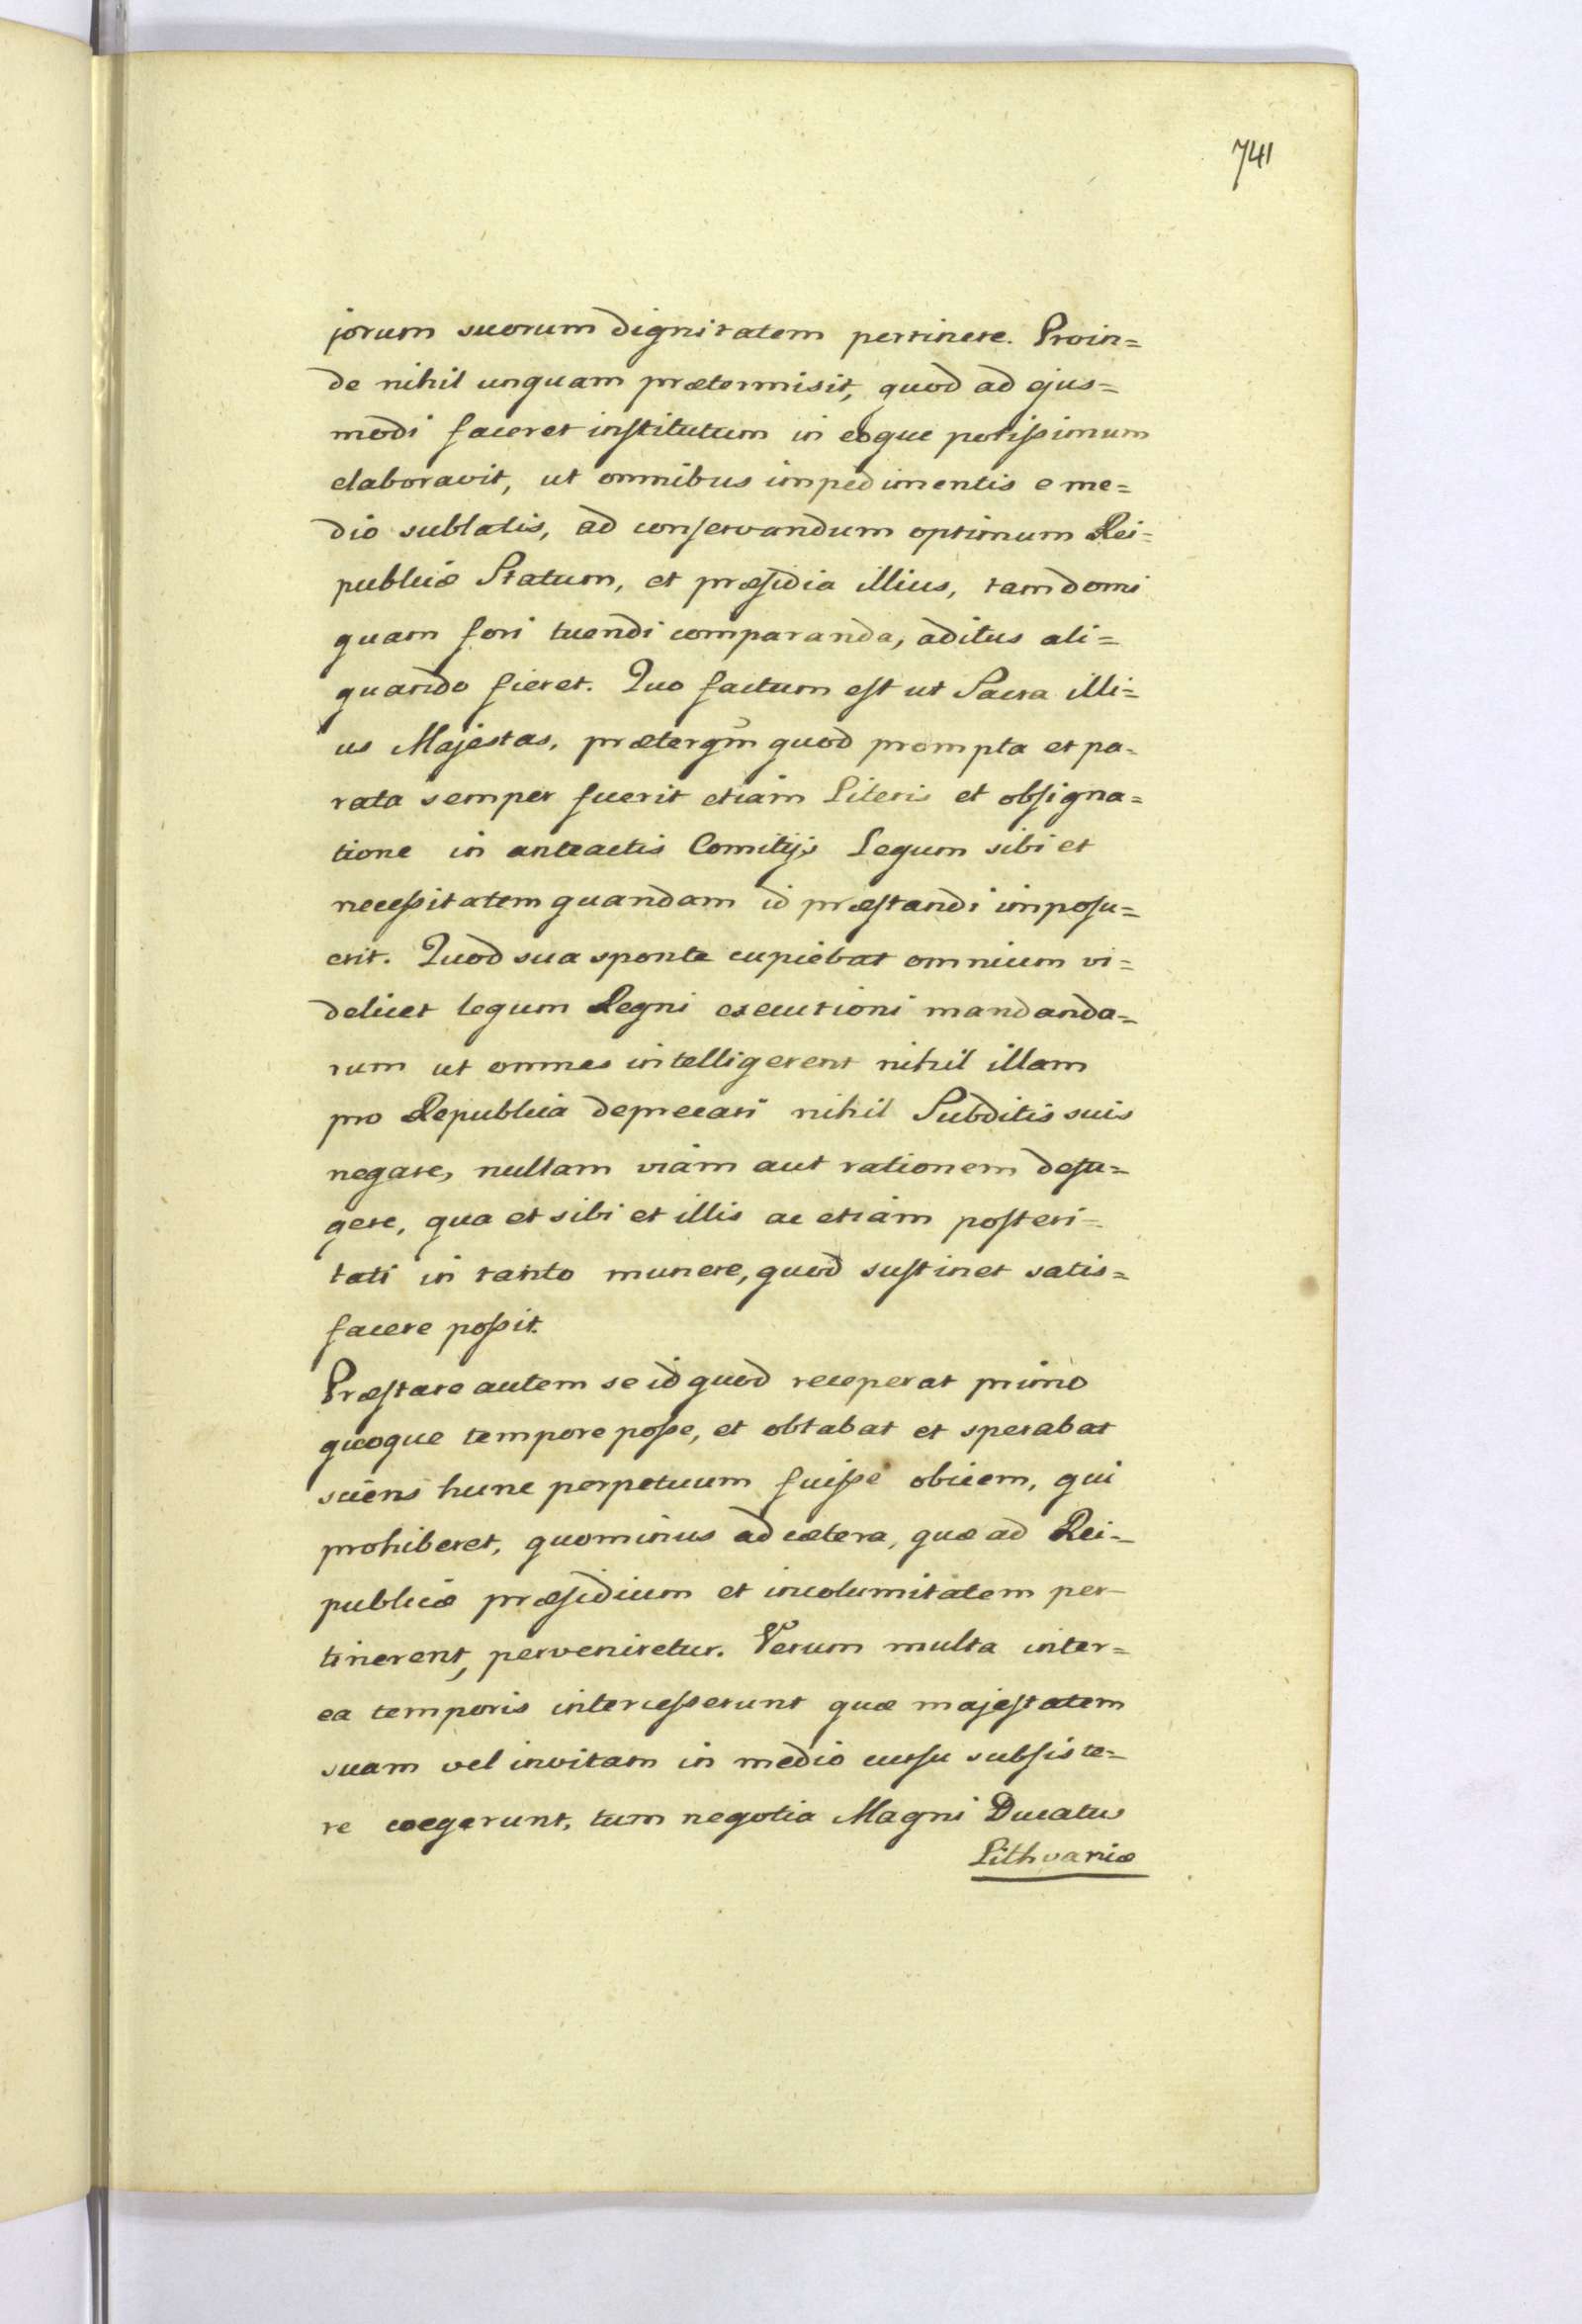 741
jorum suorum dignitatem pertinere. Proin=
de nihil unquam prætermisit, quod ad ejus=
modi faceret institutum in eoque potissimum
elaboravit, ut omnibus impedimentis e me=
dio sublatis, ad conservandum optimum Rei=
publicæ Statum, et præsidia illius, tam domi
quam fori tuendi comparanda, aditus ali=
quando fieret. Quo factum est ut Sacra illi=
us Majestas, præterqm̃ quod prompta et pa=
rata semper fuerit etiam Literis et obsigna=
tione in anteactis Comitijs Legum sibi et
necessitatem quandam id præstandi imposu=
erit. Quod sua sponte cupiebat omnium vi=
delicet legum Regni executioni mandanda=
rum ut omnes intelligerent nihil illam
pro Republica deprecari nihil Subditis suis
negare, nullam viam aut rationem defu=
gere, qua et sibi et illis ac etiam posteri=
tati in tanto munere, quod sustinet satis=
facere possit.
Præstare autem se id quod receperat primo
quoque tempore posse, et obtabat et sperabat
sciens hunc perpetuum fuisse obicem, qui
prohiberet, quominus ad cætera, quæ ad Rei=
publicæ præsidium et incolumitatem per-
tinerent, perveniretur. Verum multa inter=
ea temporis intercesserunt quæ majestatem
suam vel invitam in medio cursu subsiste=
re coegerunt, tum negotia Magni Ducatus
Lithvaniæ